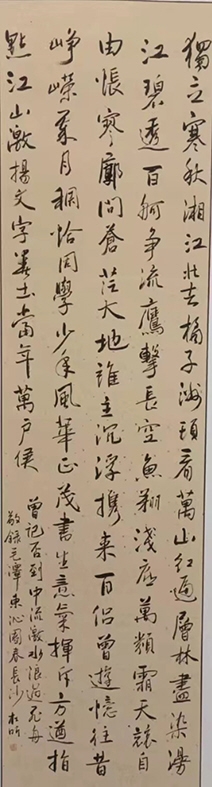 獨立寒秋湘江北去橘子洲頭看萬山紅遍層林盡染漫
江碧透百舸争流鷹擊長空魚翔淺底萬類霜天競自
由悵寥廓問蒼茫大地誰主沉浮携來百侣曾遊憶往昔
崢嶸歲月稠恰同學少年風華正茂書生意氣揮斥方遒指
點江山激揚文字糞土當年萬户侯
曾記否到中流激水浪遏飛舟
敬錄毛澤東沁園春長沙